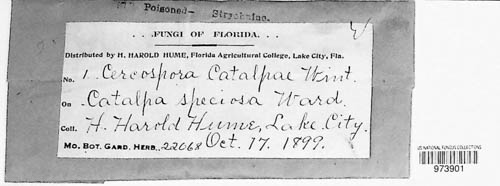 Poisoned- Strychnine.
. . .FUNGI OF FLORIDA. . . .
Distributed by H. HAROLD HUME, Florida Agricultural College, Lake City, Fla.
No. 1. Cercospora Catalpae Wint.
On Catalpa speciosa Ward.
Coll. H. Harold Hume, Lake City.
MO. BOT. GARD. HERB. 22068 Oct. 17. 1899.
US NATIONAL FUNGUS COLLECTIONS
973901